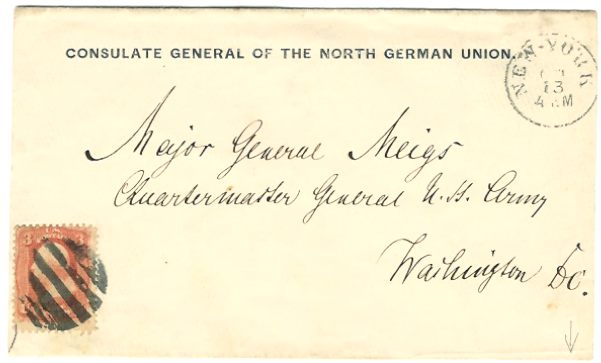 CONSULATE GENERAL OF THE NORTH GERMAN UNION.
NEW-YORK
13
Major General Meigs
Quartermaster General U.S. Army
Washington DC.
3